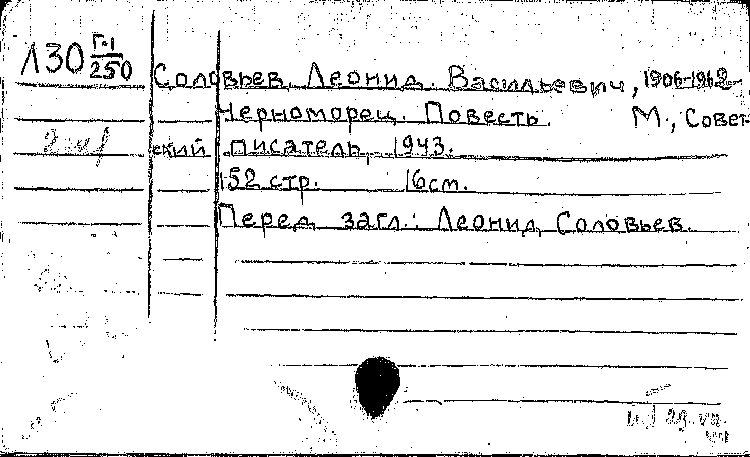 Л30 Г.1/250
Соловьев, Леонид Васильевич, 1906-1962
Черноморец. Повесть. М., Совет-
ский писатель, 1943.
152 стр. 16см.
Перед загл.: Леонид Соловьев.